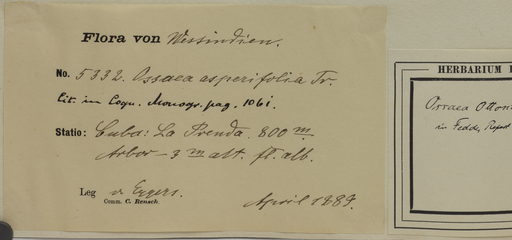 Flora von Westindien.
No. 5332. Ossaea asperifolia Tr.
Cit. in Cogn. Monogr. pag. 1061.
Statio: Cuba: La Prenda. 800 m
Arbor - 3 m alt. fl. alb.
Leg v. Eggers.
Comm. C. Rensch.
April 1889.
HERBARIUM
Ossaea Otton
in Fedde, Repert